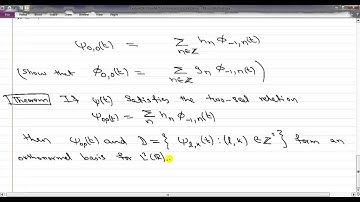 ψ₀,₀(t) = Σ_{n∈Z} hₙ φ₋₁,ₙ(t)
(Show that φ₀,₀(t) = Σ_{n∈Z} gₙ φ₋₁,ₙ(t))
Theorem If φ(t) satisfies the two-scale relation
ψ₀,₀(t) = Σₙ hₙ φ₋₁,ₙ(t)
then ψ₀,₀(t) and D = { ψ_{l,k}(t) : (l,k) ∈ Z² } form an
orthonormal basis for L²(R).